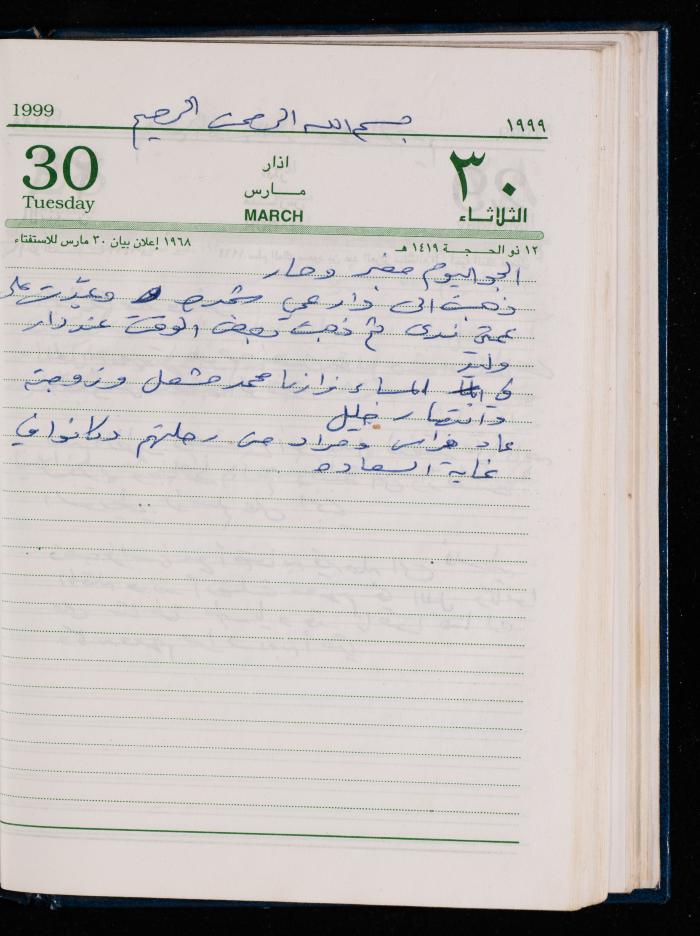 1999 بسم الله الرحمن الرحيم ١٩٩٩
30 اذار ٣٠
Tuesday مارس الثلاثاء
MARCH
١٩٦٨ إعلان بيان ٣٠ مارس للاستفتاء ١٢ ذو الحجة ١٤١٩ هـ
الجو اليوم مغبر وحار
ذهبت الى دار عمي وعيّدت على
عمتي ندى ثم ذهبت بعض الوقت عند دار
وليد
في المساء زارنا محمد مشعل وزوجته
وانتصار خليل
عاد فراس ومراد من رحلتهم وكانوا في
غاية السعاده